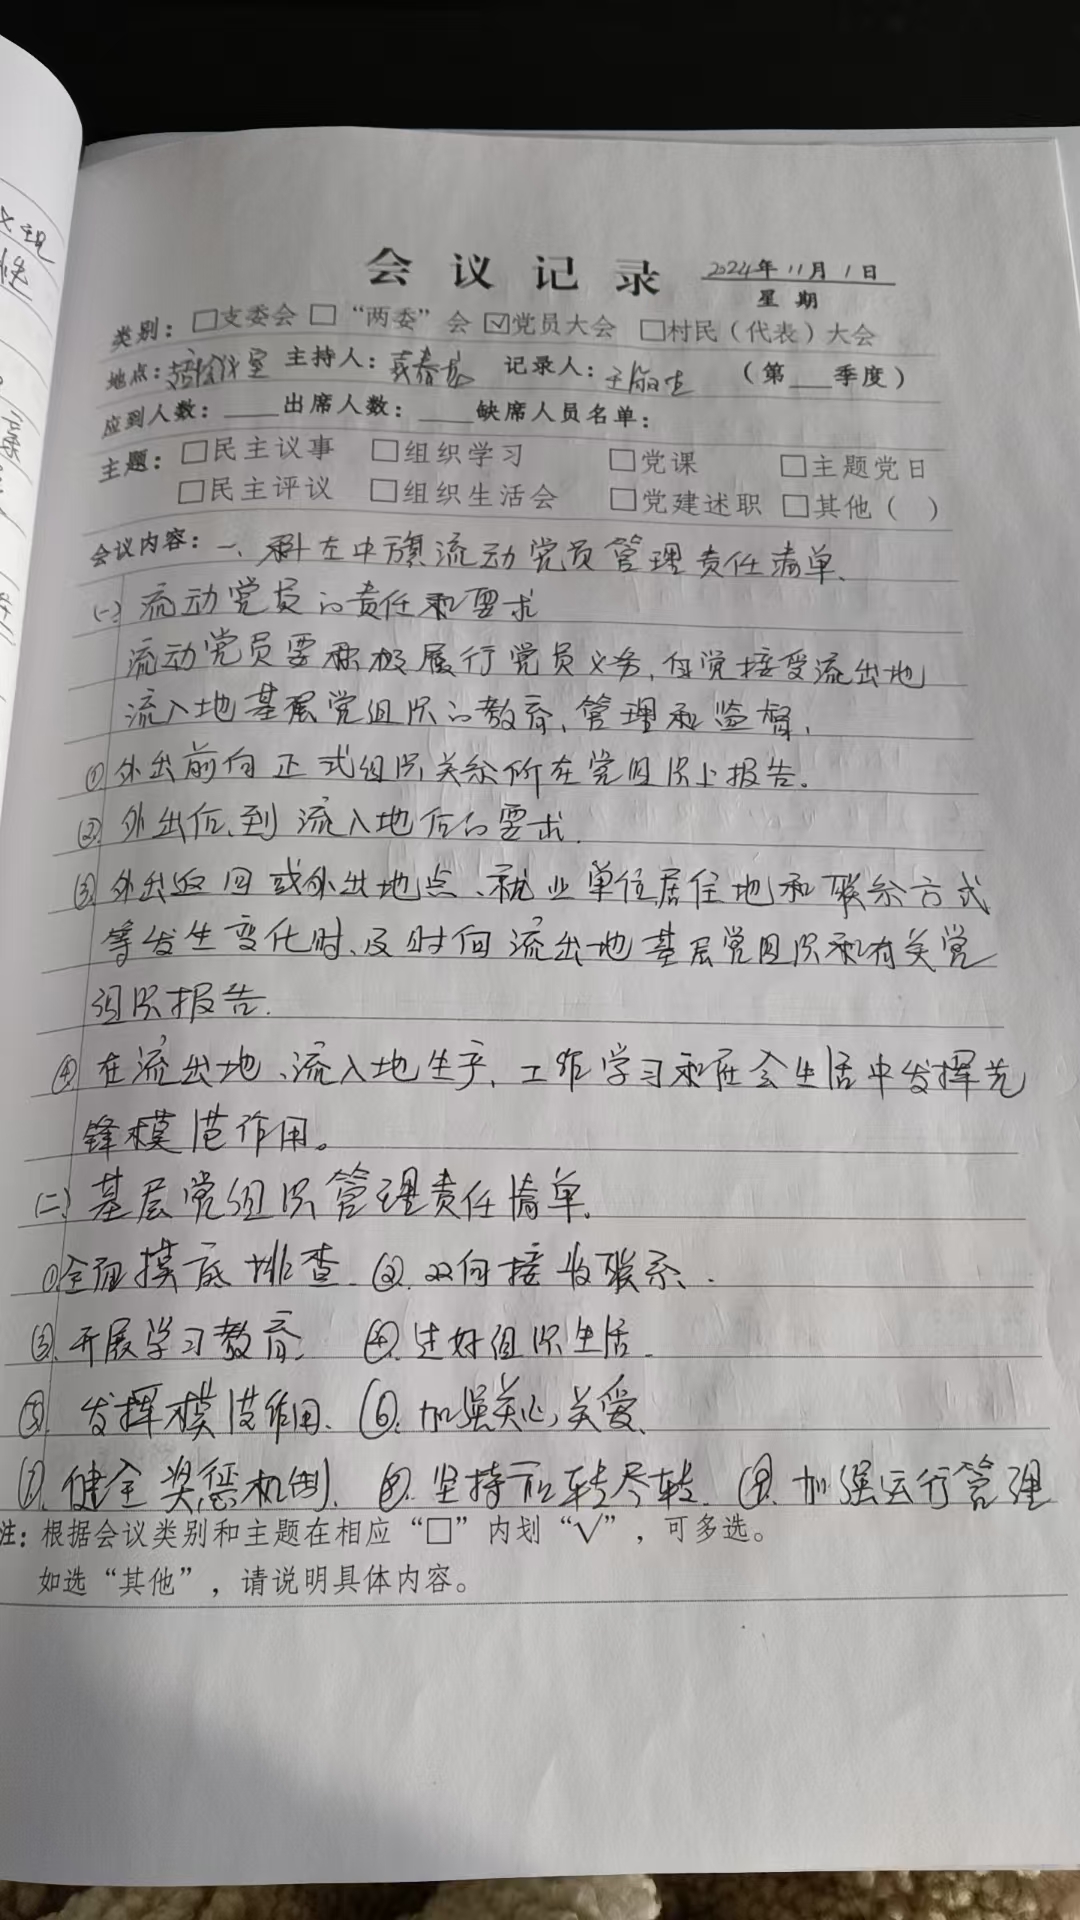 会议记录 2024年11月1日
星期
类别：□支委会 □“两委”会 ☑党员大会 □村民（代表）大会
地点：会议室 主持人： 记录人： （第___季度）
应到人数：____出席人数：____缺席人员名单：
主题：□民主议事 □组织学习 □党课 □主题党日
□民主评议 □组织生活会 □党建述职 □其他（ ）
会议内容：一、科左中旗流动党员管理责任清单.
(一) 流动党员的责任和要求
流动党员要积极履行党员义务,自觉接受流出地
流入地基层党组织的教育、管理和监督,
① 外出前向正式组织关系所在党组织上报告。
②. 外出后、到流入地后的要求.
③. 外出返回或外出地点、就业单位居住地和联系方式
等发生变化时、及时向流出地基层党组织和有关党
组织报告.
④ 在流出地、流入地生产、工作学习和社会生活中发挥先
锋模范作用。
(二) 基层党组织管理责任清单.
①.全面摸底排查. ②. 双向接收联系.
③. 开展学习教育. ④. 过好组织生活.
⑤. 发挥模范作用. ⑥. 加强关心关爱.
⑦. 健全奖惩机制. ⑧. 坚持应转尽转. ⑨. 加强运行管理
注：根据会议类别和主题在相应“□”内划“√”，可多选。
如选“其他”，请说明具体内容。